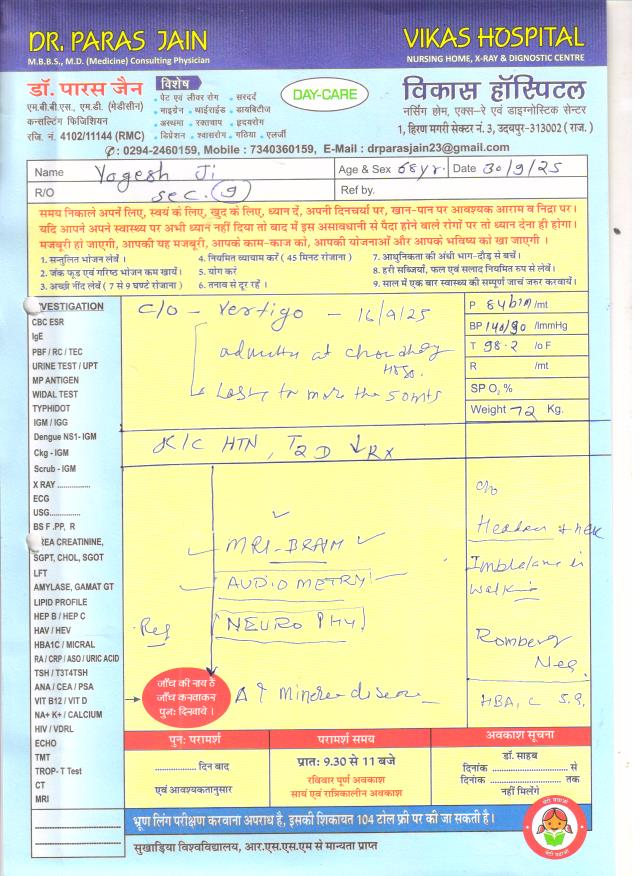 DR. PARAS JAIN
M.B.B.S., M.D. (Medicine) Consulting Physician
VIKAS HOSPITAL
NURSING HOME, X-RAY & DIGNOSTIC CENTRE
डॉ. पारस जैन
एम.बी.बी.एस., एम.डी. (मेडीसीन)
कन्सल्टिंग फिजिशियन
रजि. नं. 4102/11144 (RMC)
विशेष
• पेट एवं लीवर रोग • सरदर्द
• माइग्रेन • थाईराईड • डायबिटीज
• अस्थमा • रक्तचाप • हृदयरोग
• डिप्रेशन • श्वासरोग • गठिया • एलर्जी
DAY-CARE
विकास हॉस्पिटल
नर्सिंग होम, एक्स-रे एवं डाइग्नोस्टिक सेन्टर
1, हिरण मगरी सेक्टर नं. 3, उदयपुर-313002 ( राज. )
✆: 0294-2460159, Mobile : 7340360159, E-Mail : drparasjain23@gmail.com
Name Yogesh Ji Age & Sex 68yr. Date 30/9/25
R/O sec. (9) Ref by.
समय निकाले अपनें लिए, स्वयं के लिए, खुद के लिए, ध्यान दें, अपनी दिनचर्या पर, खान-पान पर आवश्यक आराम व निद्रा पर।
यदि आपने अपने स्वास्थ्य पर अभी ध्यान नहीं दिया तो बाद में इस असावधानी से पैदा होने वाले रोगों पर तो ध्यान देना ही होगा।
मजबूरी हां जाएगी, आपकी यह मजबूरी, आपके काम-काज को, आपकी योजनाओं और आपके भविष्य को खा जाएगी ।
1. सन्तुलित भोजन लेवें । 4. नियमित व्यायाम करें ( 45 मिनट रोजाना ) 7. आधुनिकता की अंधी भाग-दौड़ से बचें।
2. जंक फूड एवं गरिष्ठ भोजन कम खायें। 5. योग करें 8. हरी सब्जियां, फल एवं सलाद नियमित रुप से लेवें।
3. अच्छी नींद लेवें ( 7 से 9 घण्टे रोजाना ) 6. तनाव से दूर रहें । 9. साल में एक बार स्वास्थ्य की सम्पूर्ण जाचं जरुर करवायें।
INVESTIGATION
CBC ESR
IgE
PBF / RC / TEC
URINE TEST / UPT
MP ANTIGEN
WIDAL TEST
TYPHIDOT
IGM / IGG
Dengue NS1- IGM
Ckg - IGM
Scrub - IGM
X RAY ................
ECG
USG...............
BS F .PP, R
UREA CREATININE,
SGPT, CHOL, SGOT
LFT
AMYLASE, GAMAT GT
LIPID PROFILE
HEP B / HEP C
HAV / HEV
HBA1C / MICRAL
RA / CRP / ASO / URIC ACID
TSH / T3T4TSH
ANA / CEA / PSA
VIT B12 / VIT D
NA+ K+ / CALCIUM
HIV / VDRL
ECHO
TMT
TROP- T Test
CT
MRI
C/O - Vertigo - 16/9/25
at
Hosp.
to more the 5
K/C HTN, T2D ↓ Rx
MRI-BRAIN
AUDIOMETRY
Ref NEURO PHY
Δ ?
P 84 b/m /mt
BP 140/90 /lmmHg
T 98.2 /o F
R /mt
SP O2 %
Weight 72 Kg.
c/o
Imbalance in
walking
Romberg
Neg
जाँच की नाय है
जाँच करवाकर
पुनः दिखावे ।
पुनः परामर्श
.................. दिन बाद
एवं आवश्यकतानुसार
परामर्श समय
प्रातः 9.30 से 11 बजे
रविवार पूर्ण अवकाश
सायं एवं रात्रिकालीन अवकाश
अवकाश सूचना
डॉ. साहब
दिनांक .............................. से
दिनांक .............................. तक
नहीं मिलेंगे
भ्रूण लिंग परीक्षण करवाना अपराध है, इसकी शिकायत 104 टोल फ्री पर की जा सकती है।
सुखाड़िया विश्वविद्यालय, आर.एस.एस.एम से मान्यता प्राप्त
बेटी बचाओ
बेटी पढाओ